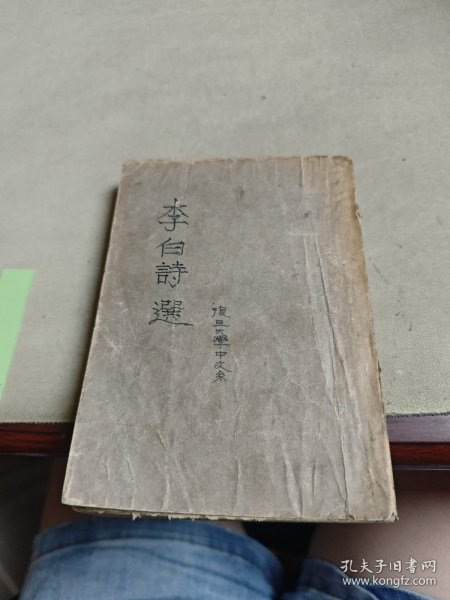 李白詩選
復旦大學中文系
孔夫子旧书网
www.kongfz.com